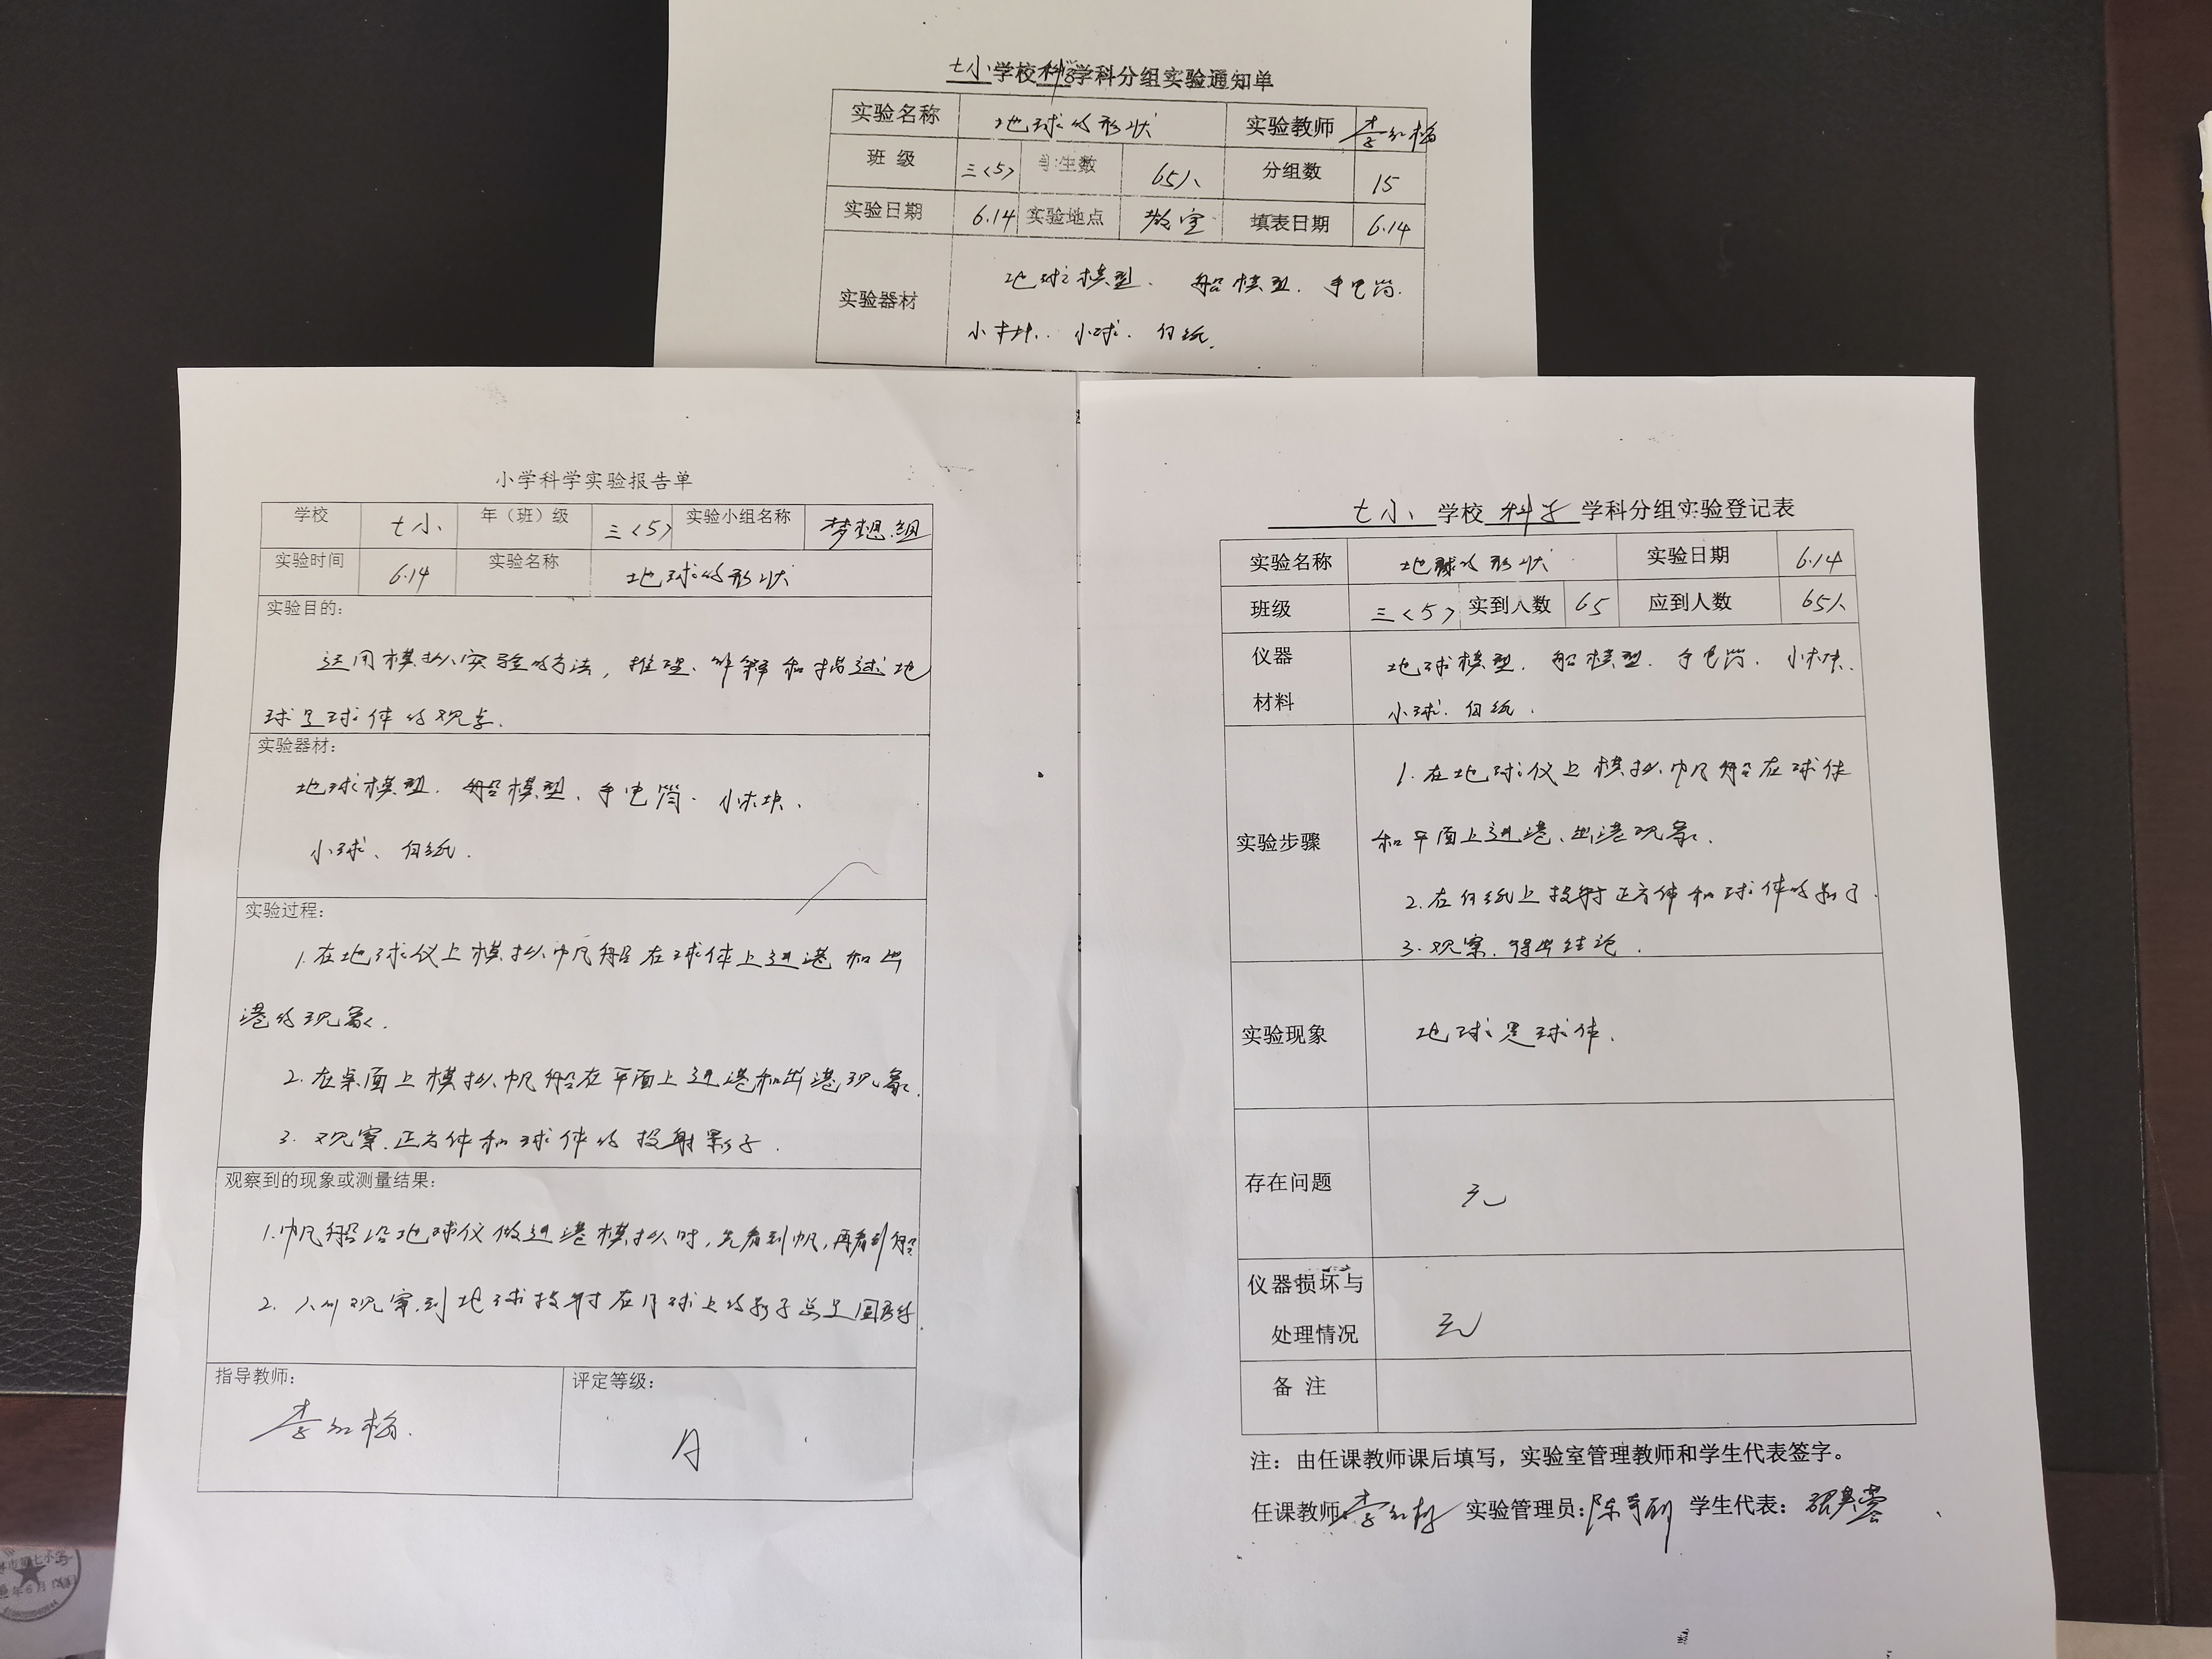 七小学校科学学科分组实验通知单
实验名称 地球的形状 实验教师 李红梅
班级 三<5> 学生数 65人 分组数 15
实验日期 6.14 实验地点 教室 填表日期 6.14
实验器材 地球模型、船模型、手电筒、
小木块、小球、白纸.
小学科学实验报告单
学校 七小 年（班）级 三<5> 实验小组名称 梦想组
实验时间 6.14 实验名称 地球的形状
实验目的：
运用模拟实验的方法，推理、解释和描述地
球是球体的观点.
实验器材：
地球模型、船模型、手电筒、小木块、
小球、白纸.
实验过程：
1.在地球仪上模拟帆船在球体上进港和出
港的现象.
2.在桌面上模拟帆船在平面上进港和出港现象.
3.观察正方体和球体的投射影子.
观察到的现象或测量结果：
1.帆船沿地球仪做进港模拟时，先看到帆，再看到船
2.人们观察到地球投射在月球上的影子总是圆形的.
指导教师： 评定等级：
李红梅. A
七小 学校 科学 学科分组实验登记表
实验名称 地球的形状 实验日期 6.14
班级 三<5> 实到人数 65 应到人数 65人
仪器 地球模型、船模型、手电筒、小木块、
材料 小球、白纸.
1.在地球仪上模拟帆船在球体
实验步骤 和平面上进港、出港现象.
2.在白纸上投射正方体和球体的影子.
3.观察、得出结论.
实验现象 地球是球体.
存在问题 无
仪器损坏与
处理情况 无
备注
注：由任课教师课后填写，实验室管理教师和学生代表签字。
任课教师:李红梅 实验管理员: 学生代表：